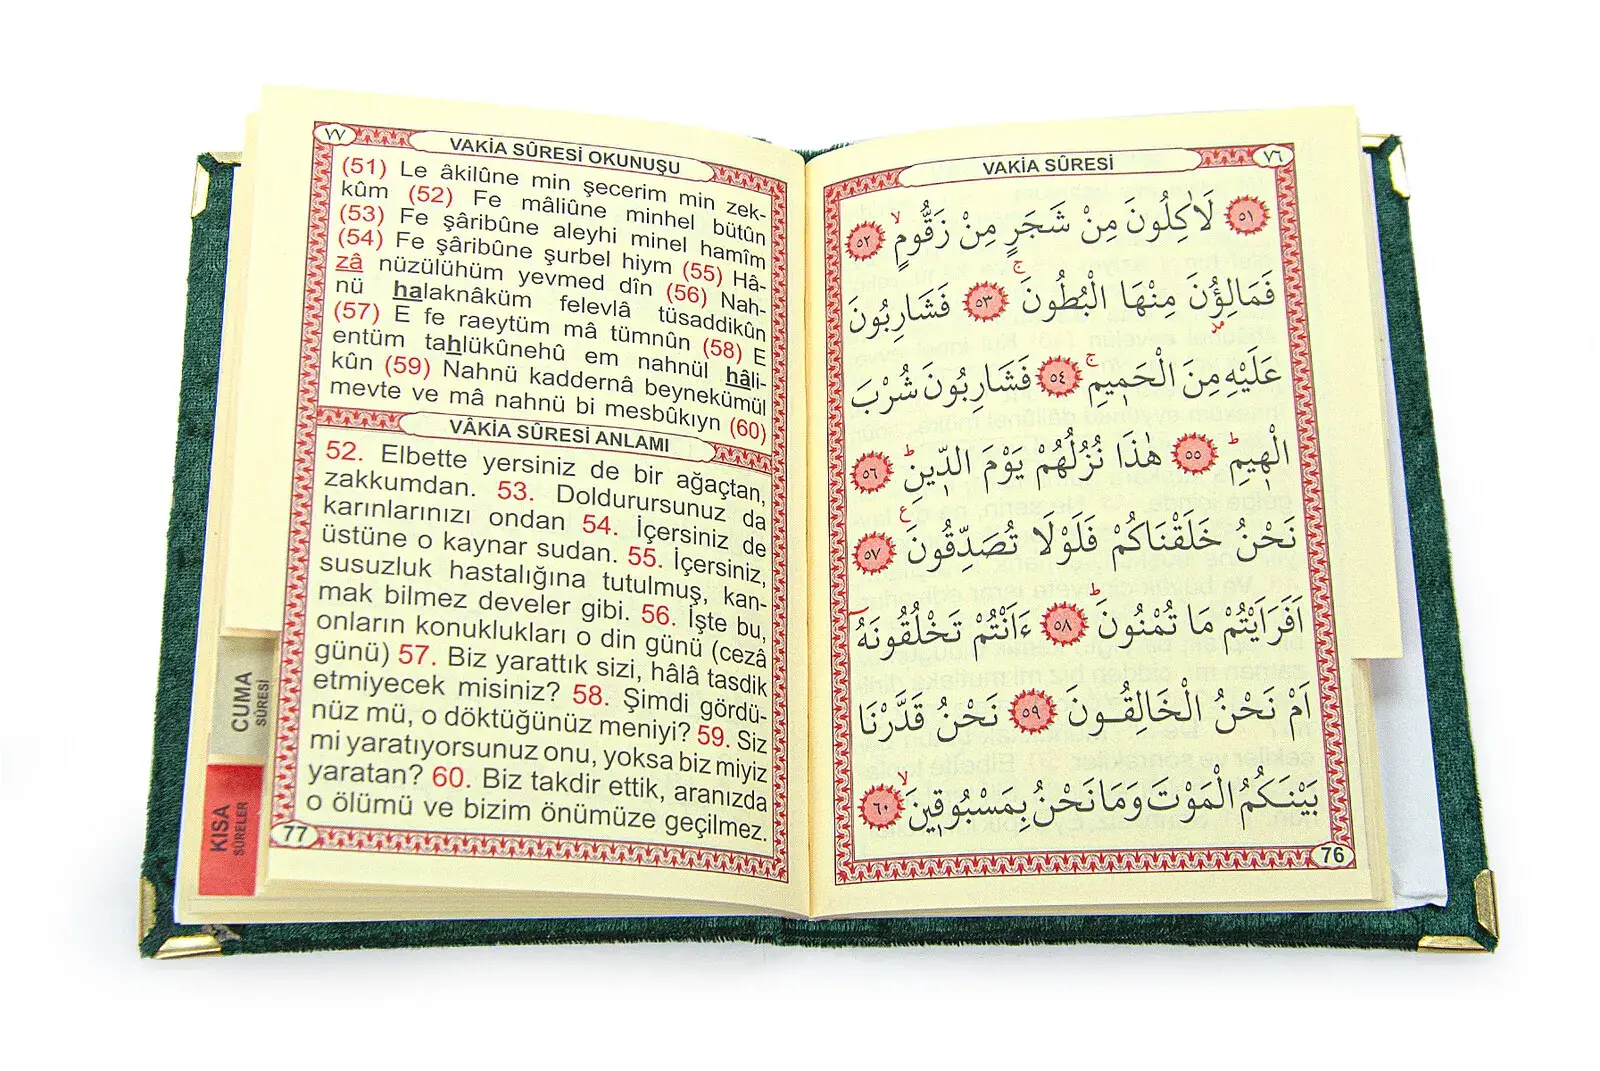 ٧٧
VAKİA SÛRESİ OKUNUŞU
(51) Le âkilûne min şecerim min zek-
kûm (52) Fe mâliûne minhel bütûn
(53) Fe şâribûne aleyhi minel hamîm
(54) Fe şâribûne şurbel hiym (55) Hâ-
zâ nüzülühüm yevmed dîn (56) Nah-
nü halaknâküm felevlâ tüsaddikûn
(57) E fe raeytüm mâ tümnûn (58) E
entüm tahlükûnehû em nahnül hâli-
kûn (59) Nahnü kaddernâ beynekümül
mevte ve mâ nahnü bi mesbûkıyn (60)
VÂKİA SÛRESİ ANLAMI
52. Elbette yersiniz de bir ağaçtan,
zakkumdan. 53. Doldurursunuz da
karınlarınızı ondan 54. İçersiniz de
üstüne o kaynar sudan. 55. İçersiniz,
susuzluk hastalığına tutulmuş, kan-
mak bilmez develer gibi. 56. İşte bu,
onların konuklukları o din günü (cezâ
günü) 57. Biz yarattık sizi, hâlâ tasdik
etmiyecek misiniz? 58. Şimdi gördü-
nüz mü, o döktüğünüz meniyi? 59. Siz
mi yaratıyorsunuz onu, yoksa biz miyiz
yaratan? 60. Biz takdir ettik, aranızda
o ölümü ve bizim önümüze geçilmez.
77
CUMA
SÛRESİ
KISA
SÛRELER
VAKİA SÛRESİ
٧٦
٥١ لَاٰكِلُونَ مِنْ شَجَرٍ مِنْ زَقُّومٍۙ ٥٢
فَمَالِؤُنَ مِنْهَا الْبُطُونَۚ ٥٣ فَشَارِبُونَ
عَلَيْهِ مِنَ الْحَمٖيمِۚ ٥٤ فَشَارِبُونَ شُرْبَ
الْهٖيمِؕ ٥٥ هٰذَا نُزُلُهُمْ يَوْمَ الدّٖينِؕ ٥٦
نَحْنُ خَلَقْنَاكُمْ فَلَوْلَا تُصَدِّقُونَ ٥٧
اَفَرَاَيْتُمْ مَا تُمْنُونَؕ ٥٨ ءَاَنْتُمْ تَخْلُقُونَهُٓ
اَمْ نَحْنُ الْخَالِقُونَ ٥٩ نَحْنُ قَدَّرْنَا
بَيْنَكُمُ الْمَوْتَ وَمَا نَحْنُ بِمَسْبُوقٖينَۙ ٦٠
76